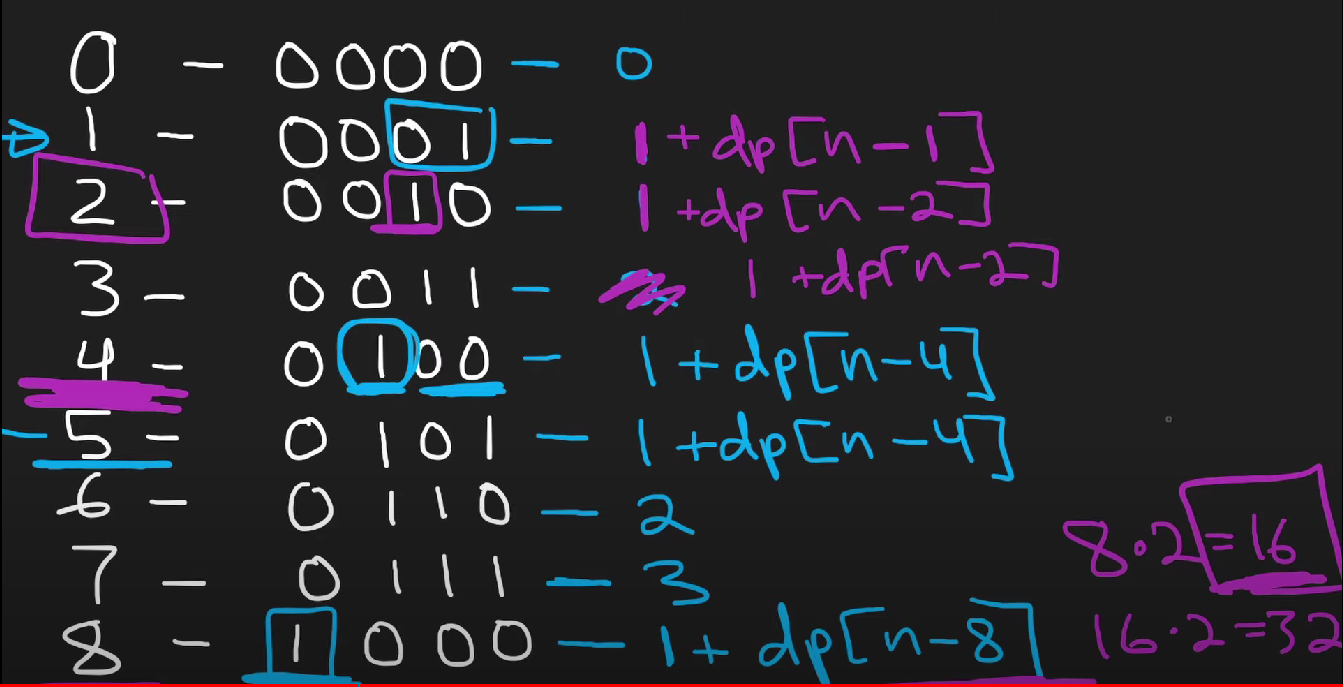 0 - 0000 - 0
1 - 0001 - 1 + dp[n-1]
2 - 0010 - 1 + dp[n-2]
3 - 0011 - 1 + dp[n-2]
4 - 0100 - 1 + dp[n-4]
5 - 0101 - 1 + dp[n-4]
6 - 0110 - 2
7 - 0111 - 3
8 - 1000 - 1 + dp[n-8]
8·2 = 16
16·2 = 32